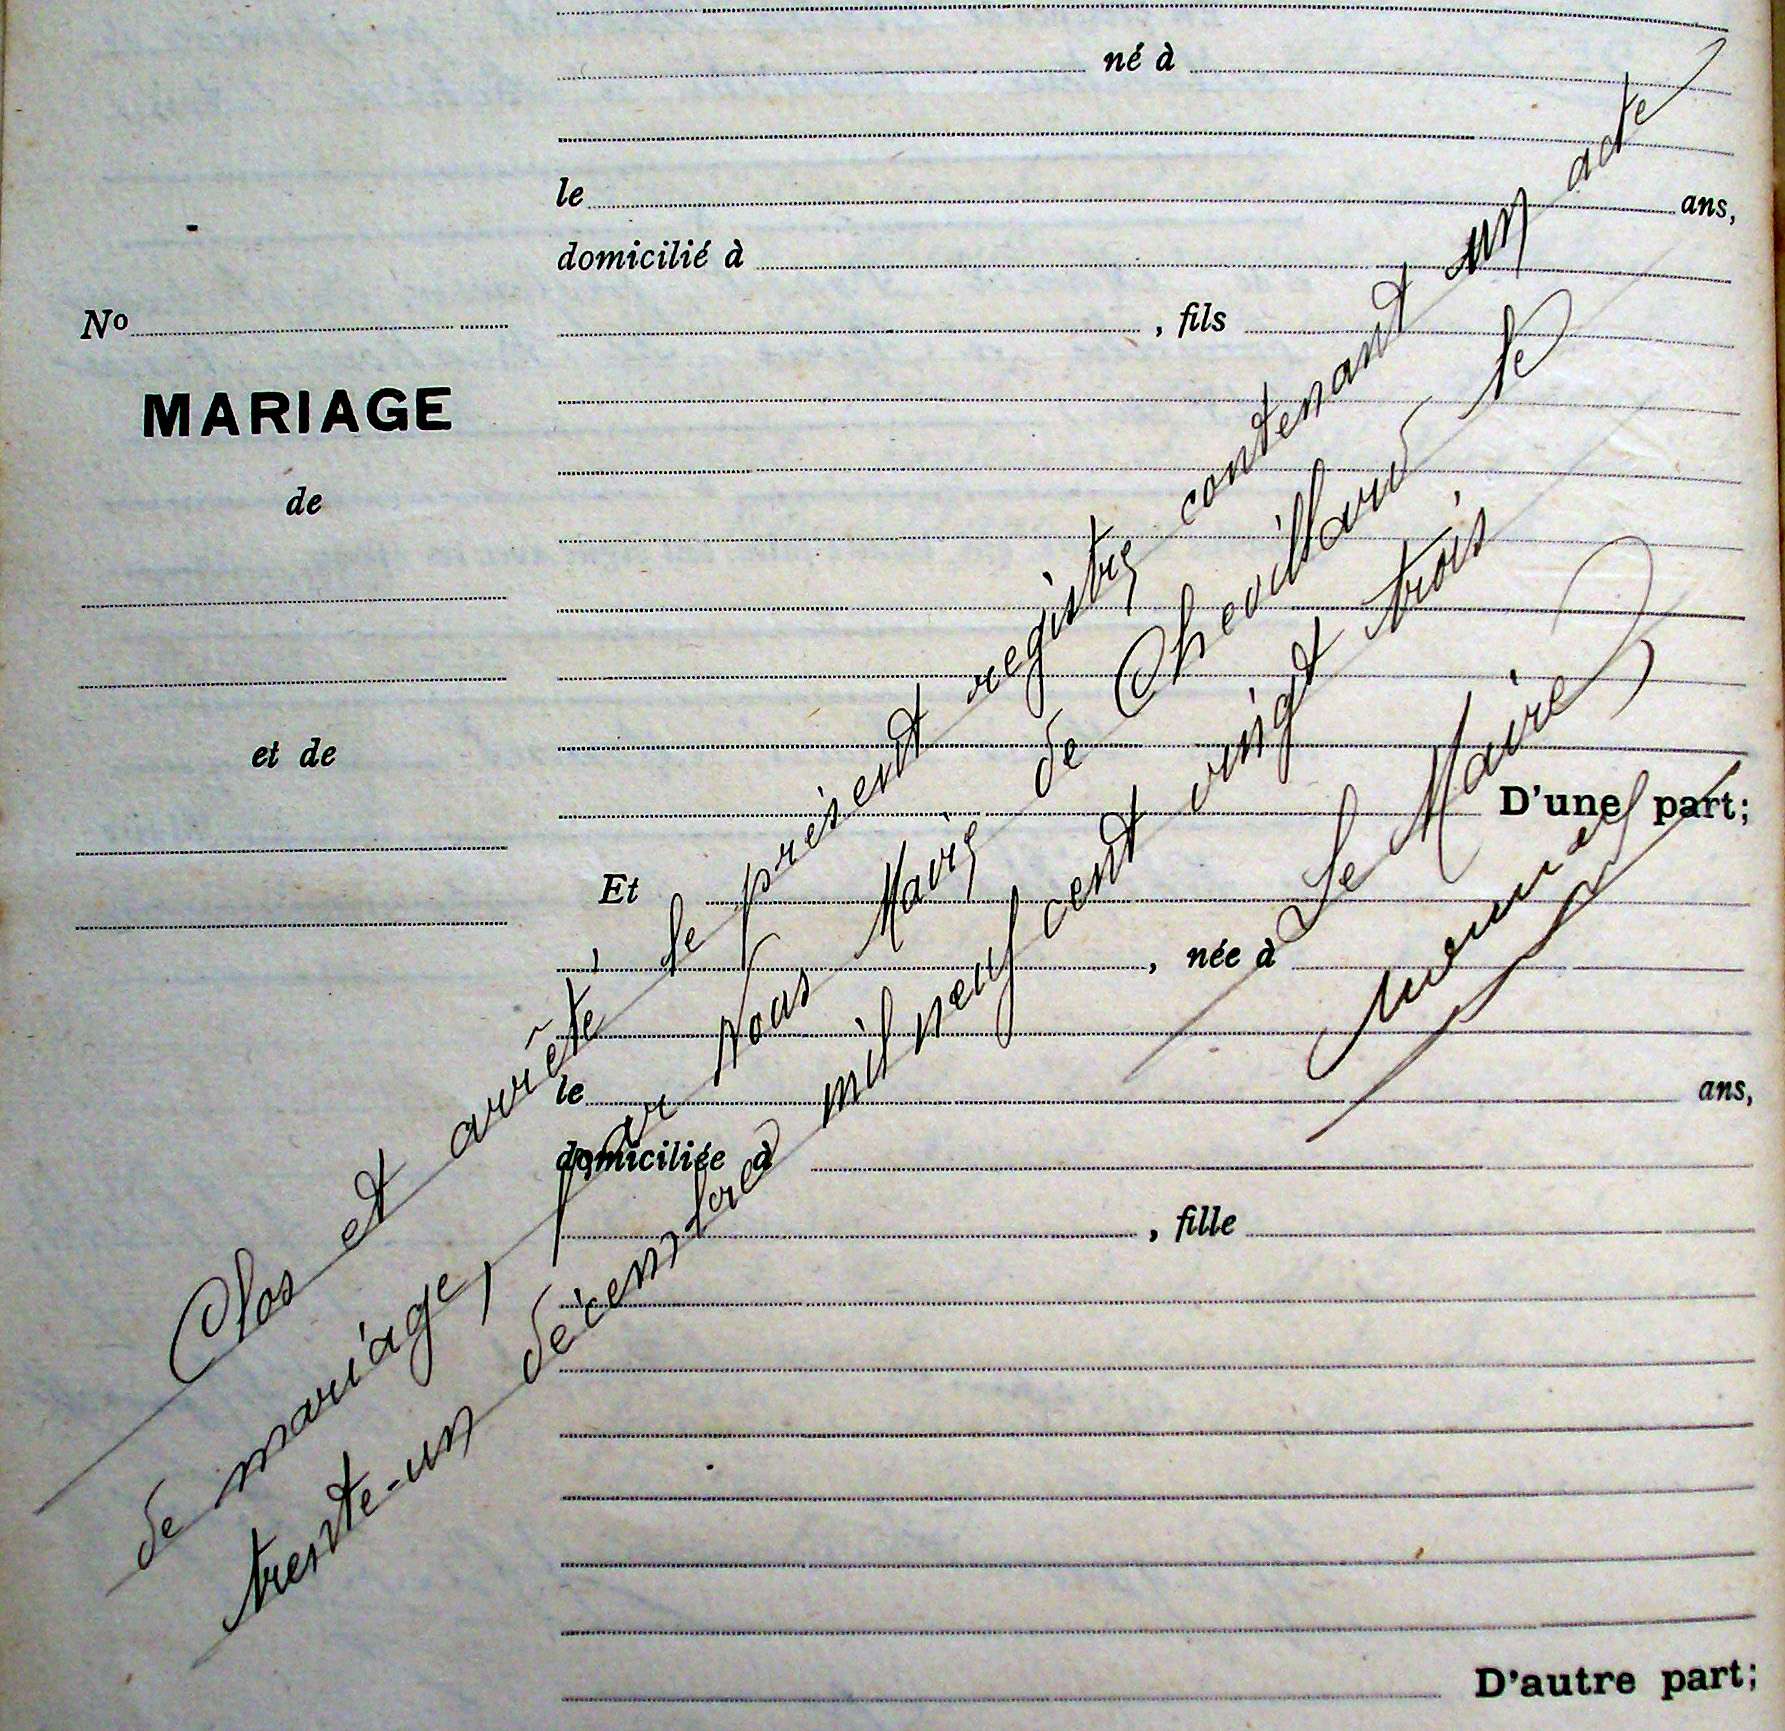 né à
le ans,
domicilié à
No , fils
MARIAGE
de
et de
D'une part;
Et
, née à
le ans,
domiciliée à
, fille
D'autre part;
Clos et arrêté le présent registre contenant un acte
de mariage, par Nous Maire de Chevillard le
trente-un décembre mil neuf cent vingt trois
Le Maire